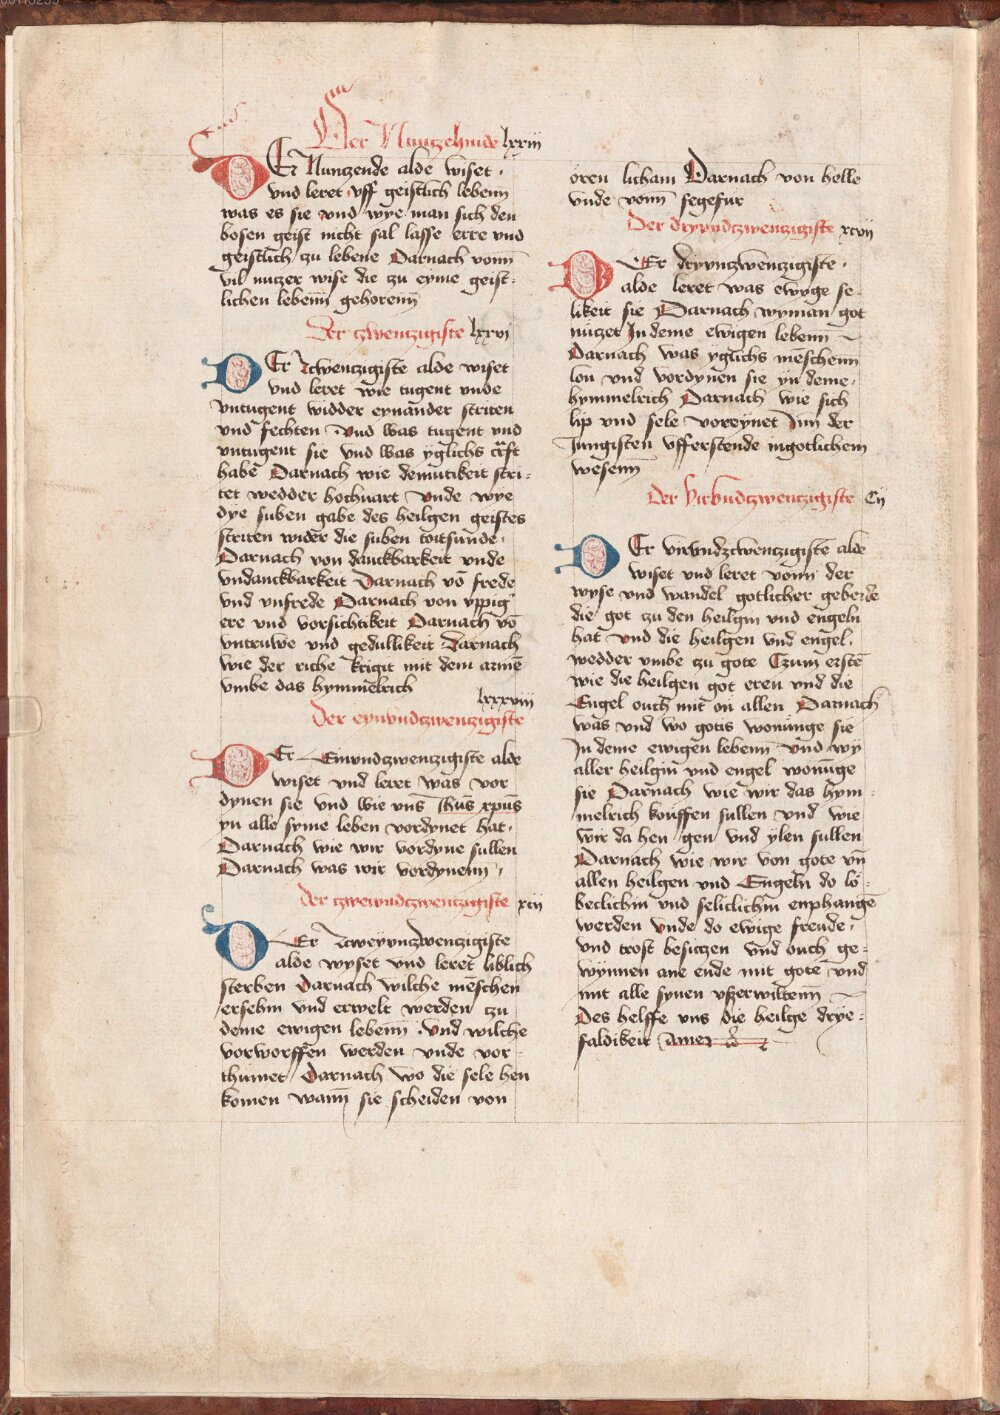 Der Nunzehinde lxxiii
DEr Nunzende alde wiset ·
vnd leret vff geistlich lebenn
was es sie vnd wye man sich den
bosen geist nicht sal lasse erre vnd
geistlich zu lebene Darnach vonn
vil nutzer wise die zu eyme geist-
lichen lebenn gehorenn
Der zwenzigiste lxxvi
DEr Zcwenczigiste alde wiset
vnd leret wie tugent vnde
vntugent widder eynander striten
vnd fechten · Vnd was tugent vnd
vntugent sie vnd was yglichs crft
habē Darnach wie demutikeit stri-
tet wedder hochuart Vnde wye
dye suben gabe des heilgen geistes
striten wider die suben toitsunde ·
Darnach von danckbarkeit vnde
vndanckbarkeit Darnach vō frede
vnd vnfrede Darnach von vppig
ere vnd vorsichtikeit Darnach vō
vntruwe vnd gedullikeit Darnach
wie der riche krigit mit dem armē
vmbe das hymmelrich
lxxxviii
Der eynvndzwenzigiste
DEr Einvndzwenzigiste alde
wiset vnd leret was vor
dynen sie vnd wie vns Ihūs xpūs
yn alle syme leben vordynet hat ·
Darnach wie wir vordyne sullen
Darnach was wir vordynenn ·
Der zwevndczwenczigiste xcii
DEr Zcweyvnzwenczigiste
alde wyset vnd leret liblich
sterben Darnach wilche mēschen
ersehin vnd erwelt werden zu
deme ewigen lebenn · vnd wilche
vorworffen werden vnde vor-
thumet Darnach wo die sele hen
komen wann sie scheiden von
oren licham Darnach von helle
vnde vonn fegefur
Der dryvndczwenczigiste xcvii
DEr dryvnzwenczigiste ·
alde leret was ewyge se-
likeit sie Darnach wyman got
nutzet In deme ewigen lebenn
Darnach was yglichs mēschenn
lon vnd vordynen sie yn deme ·
hymmelrich Darnach wie sich
lip vnd sele voreynet Inn der
Jungisten vfferstende ingotlichem
wesenn
Der virvndczwenczigiste Cii
DEr virvndzcwenczigiste alde
wiset vnd leret vonn der
wyse vnd wandel gotlicher geberde
die got zu den heilgin vnd engeln
hat vnd die heilgen vnd engel ·
wedder vmbe zu gote Czum erstē
wie die heilgen got eren vnd die
Engel ouch mit on allen Darnach
was vnd wo gotis wonunge sie
In deme ewigen lebenn vnd wy
aller heilgin vnd engel wonūge
sie Darnach wie wir das hym-
melrich kouffen sullen vnd wie
wir da hen gen vnd ylen sullen
Darnach wie wir von gote vn̄
allen heilgen vnd Engeln do lo-
beclichin vnd seliclichin enphange
werden vnde do ewige freude ·
vnd trost besitzen vnd ouch ge-
wynnen ane ende mit gote vnd
mit alle synen vßerwiltenn
Des helffe vns die heilge drye-
faldikeit Amen